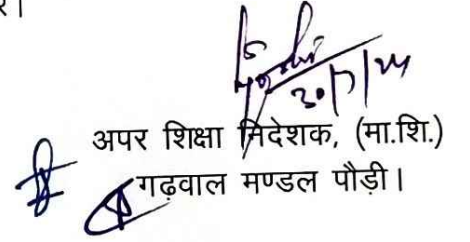 र।
30/7/24
अपर शिक्षा निदेशक, (मा.शि.)
गढ़वाल मण्डल पौड़ी।